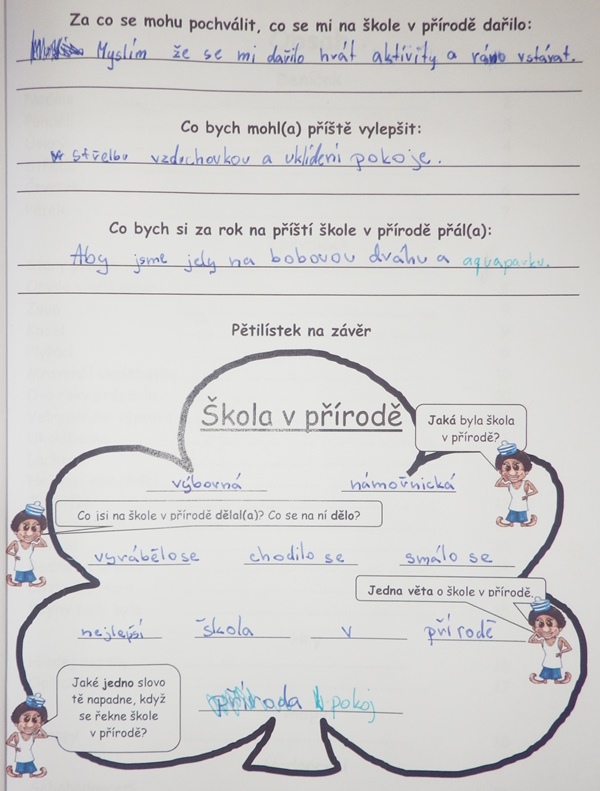 Za co se mohu pochválit, co se mi na škole v přírodě dařilo:
Myslím že se mi dařilo hrát aktivity a ráno vstávat.
Co bych mohl(a) příště vylepšit:
střelbu vzduchovkou a uklídění pokoje.
Co bych si za rok na příští škole v přírodě přál(a):
Aby jsme jely na bobovou dráhu a aquaparku.
Pětilístek na závěr
Škola v přírodě
Jaká byla škola
v přírodě?
výborná námořnická
Co jsi na škole v přírodě dělal(a)? Co se na ní dělo?
vyrábělose chodilo se smálo se
Jedna věta o škole v přírodě.
nejlepší škola v přírodě
Jaké jedno slovo
tě napadne, když
se řekne škole
v přírodě?
příroda pokoj